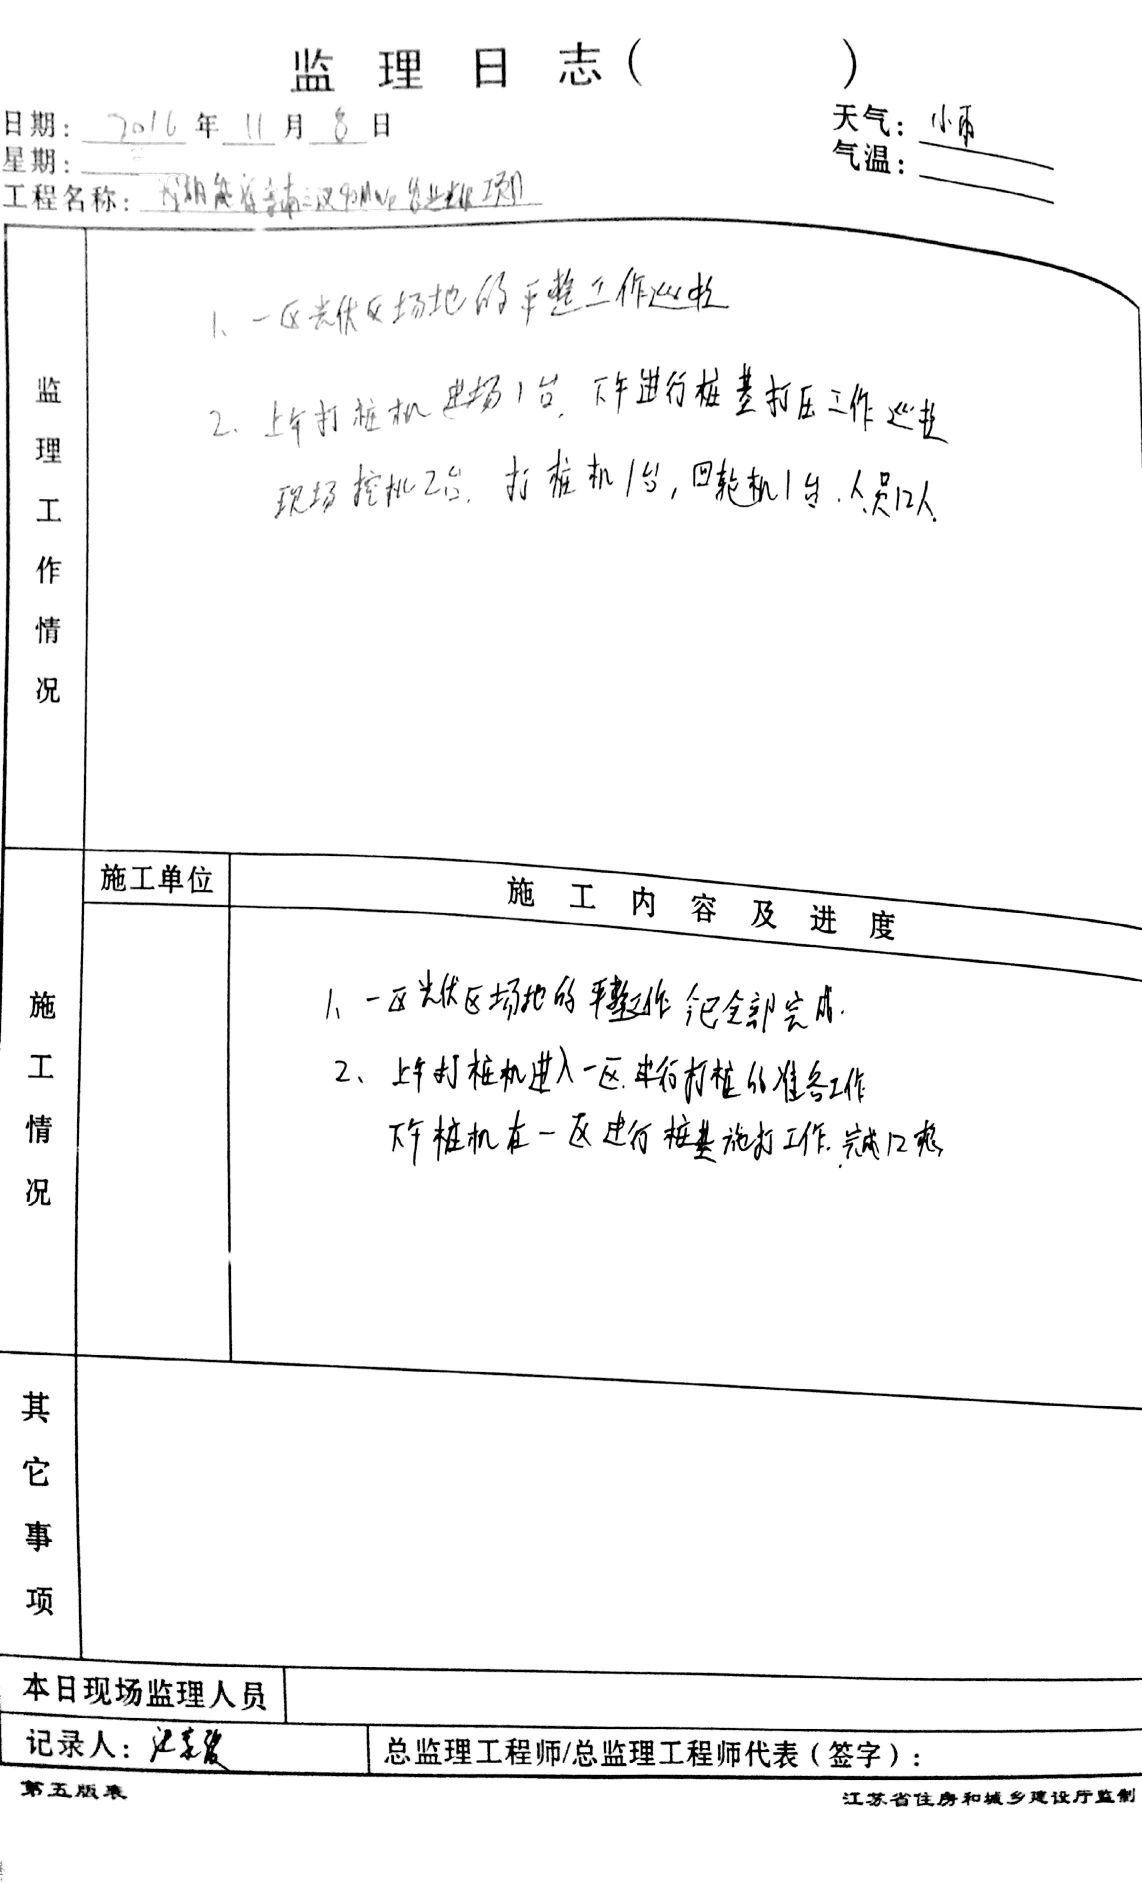 监理日志（ ）
日期：2016年11月8日
天气：小雨
星期：二
气温：
工程名称：
1、一区光伏区场地的平整工作巡检
2、上午打桩机进场1台，下午进行桩基打压工作巡检
现场挖机2台，打桩机1台，回轮机1台，人员12人.
监理工作情况
施工单位
施工内容及进度
1、一区光伏区场地的平整工作今已全部完成.
2、上午打桩机进入一区，进行打桩的准备工作
下午桩机在一区进行桩基施打工作，完成12
施工情况
其它事项
本日现场监理人员
记录人：
总监理工程师/总监理工程师代表（签字）：
第五版表
江苏省住房和城乡建设厅监制